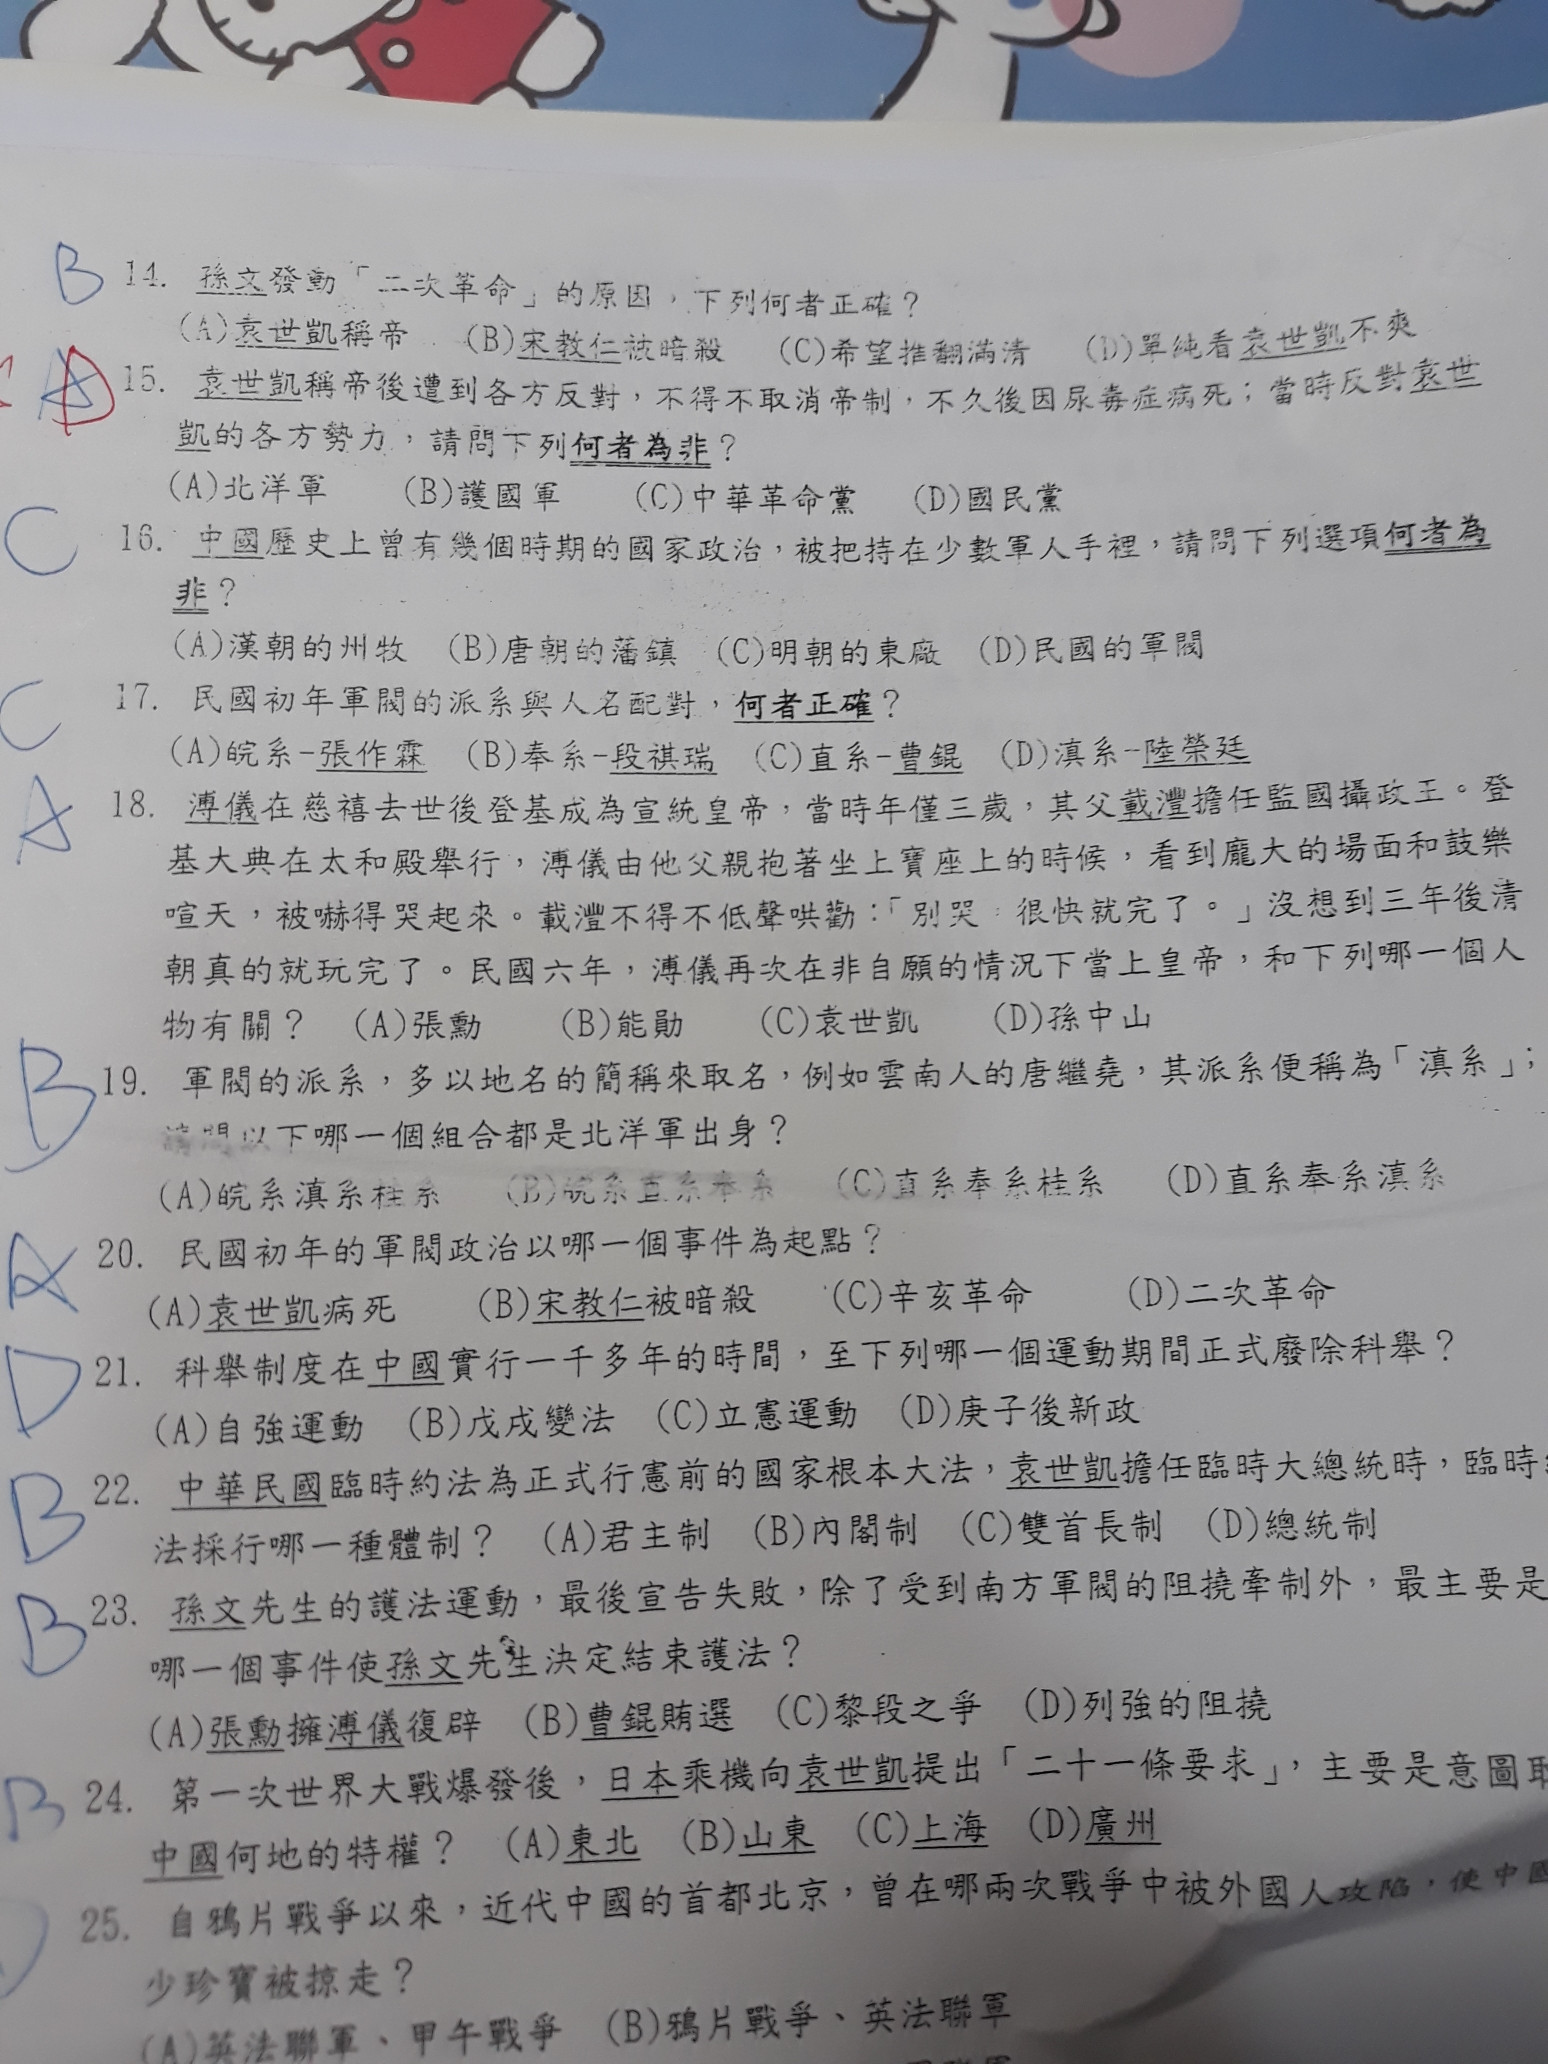 B 14. 孫文發動「二次革命」的原因，下列何者正確？
(A)袁世凱稱帝 (B)宋教仁被暗殺 (C)希望推翻滿清 (D)單純看袁世凱不爽
D 15. 袁世凱稱帝後遭到各方反對，不得不取消帝制，不久後因尿毒症病死；當時反對袁世
凱的各方勢力，請問下列何者為非？
(A)北洋軍 (B)護國軍 (C)中華革命黨 (D)國民黨
C 16. 中國歷史上曾有幾個時期的國家政治，被把持在少數軍人手裡，請問下列選項何者為
非？
(A)漢朝的州牧 (B)唐朝的藩鎮 (C)明朝的東廠 (D)民國的軍閥
C 17. 民國初年軍閥的派系與人名配對，何者正確？
(A)皖系-張作霖 (B)奉系-段祺瑞 (C)直系-曹錕 (D)滇系-陸榮廷
A 18. 溥儀在慈禧去世後登基成為宣統皇帝，當時年僅三歲，其父載灃擔任監國攝政王。登
基大典在太和殿舉行，溥儀由他父親抱著坐上寶座上的時候，看到龐大的場面和鼓樂
喧天，被嚇得哭起來。載灃不得不低聲哄勸：「別哭，很快就完了。」沒想到三年後清
朝真的就玩完了。民國六年，溥儀再次在非自願的情況下當上皇帝，和下列哪一個人
物有關？ (A)張勳 (B)能勛 (C)袁世凱 (D)孫中山
B 19. 軍閥的派系，多以地名的簡稱來取名，例如雲南人的唐繼堯，其派系便稱為「滇系」；
請問以下哪一個組合都是北洋軍出身？
(A)皖系滇系桂系 (B)皖系直系奉系 (C)直系奉系桂系 (D)直系奉系滇系
A 20. 民國初年的軍閥政治以哪一個事件為起點？
(A)袁世凱病死 (B)宋教仁被暗殺 (C)辛亥革命 (D)二次革命
D 21. 科舉制度在中國實行一千多年的時間，至下列哪一個運動期間正式廢除科舉？
(A)自強運動 (B)戊戌變法 (C)立憲運動 (D)庚子後新政
B 22. 中華民國臨時約法為正式行憲前的國家根本大法，袁世凱擔任臨時大總統時，臨時
法採行哪一種體制？ (A)君主制 (B)內閣制 (C)雙首長制 (D)總統制
B 23. 孫文先生的護法運動，最後宣告失敗，除了受到南方軍閥的阻撓牽制外，最主要是
哪一個事件使孫文先生決定結束護法？
(A)張勳擁溥儀復辟 (B)曹錕賄選 (C)黎段之爭 (D)列強的阻撓
B 24. 第一次世界大戰爆發後，日本乘機向袁世凱提出「二十一條要求」，主要是意圖取
中國何地的特權？ (A)東北 (B)山東 (C)上海 (D)廣州
25. 自鴉片戰爭以來，近代中國的首都北京，曾在哪兩次戰爭中被外國人攻陷，使中國
少珍寶被掠走？
(A)英法聯軍、甲午戰爭 (B)鴉片戰爭、英法聯軍